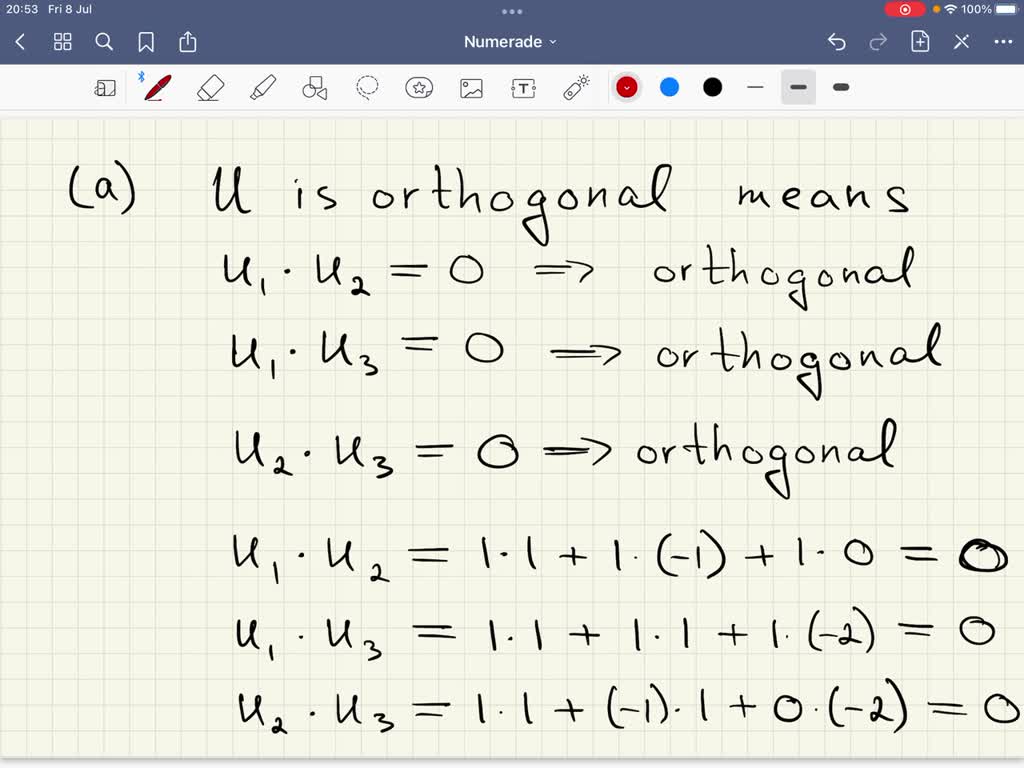 20:53 Fri 8 Jul 100%
Numerade
T
(a) U is orthogonal means
u₁ · u₂ = 0 ⇒ orthogonal
u₁ · u₃ = 0 ⇒ orthogonal
u₂ · u₃ = 0 ⇒ orthogonal
u₁ · u₂ = 1·1 + 1·(-1) + 1·0 = 0
u₁ · u₃ = 1·1 + 1·1 + 1·(-2) = 0
u₂ · u₃ = 1·1 + (-1)·1 + 0·(-2) = 0